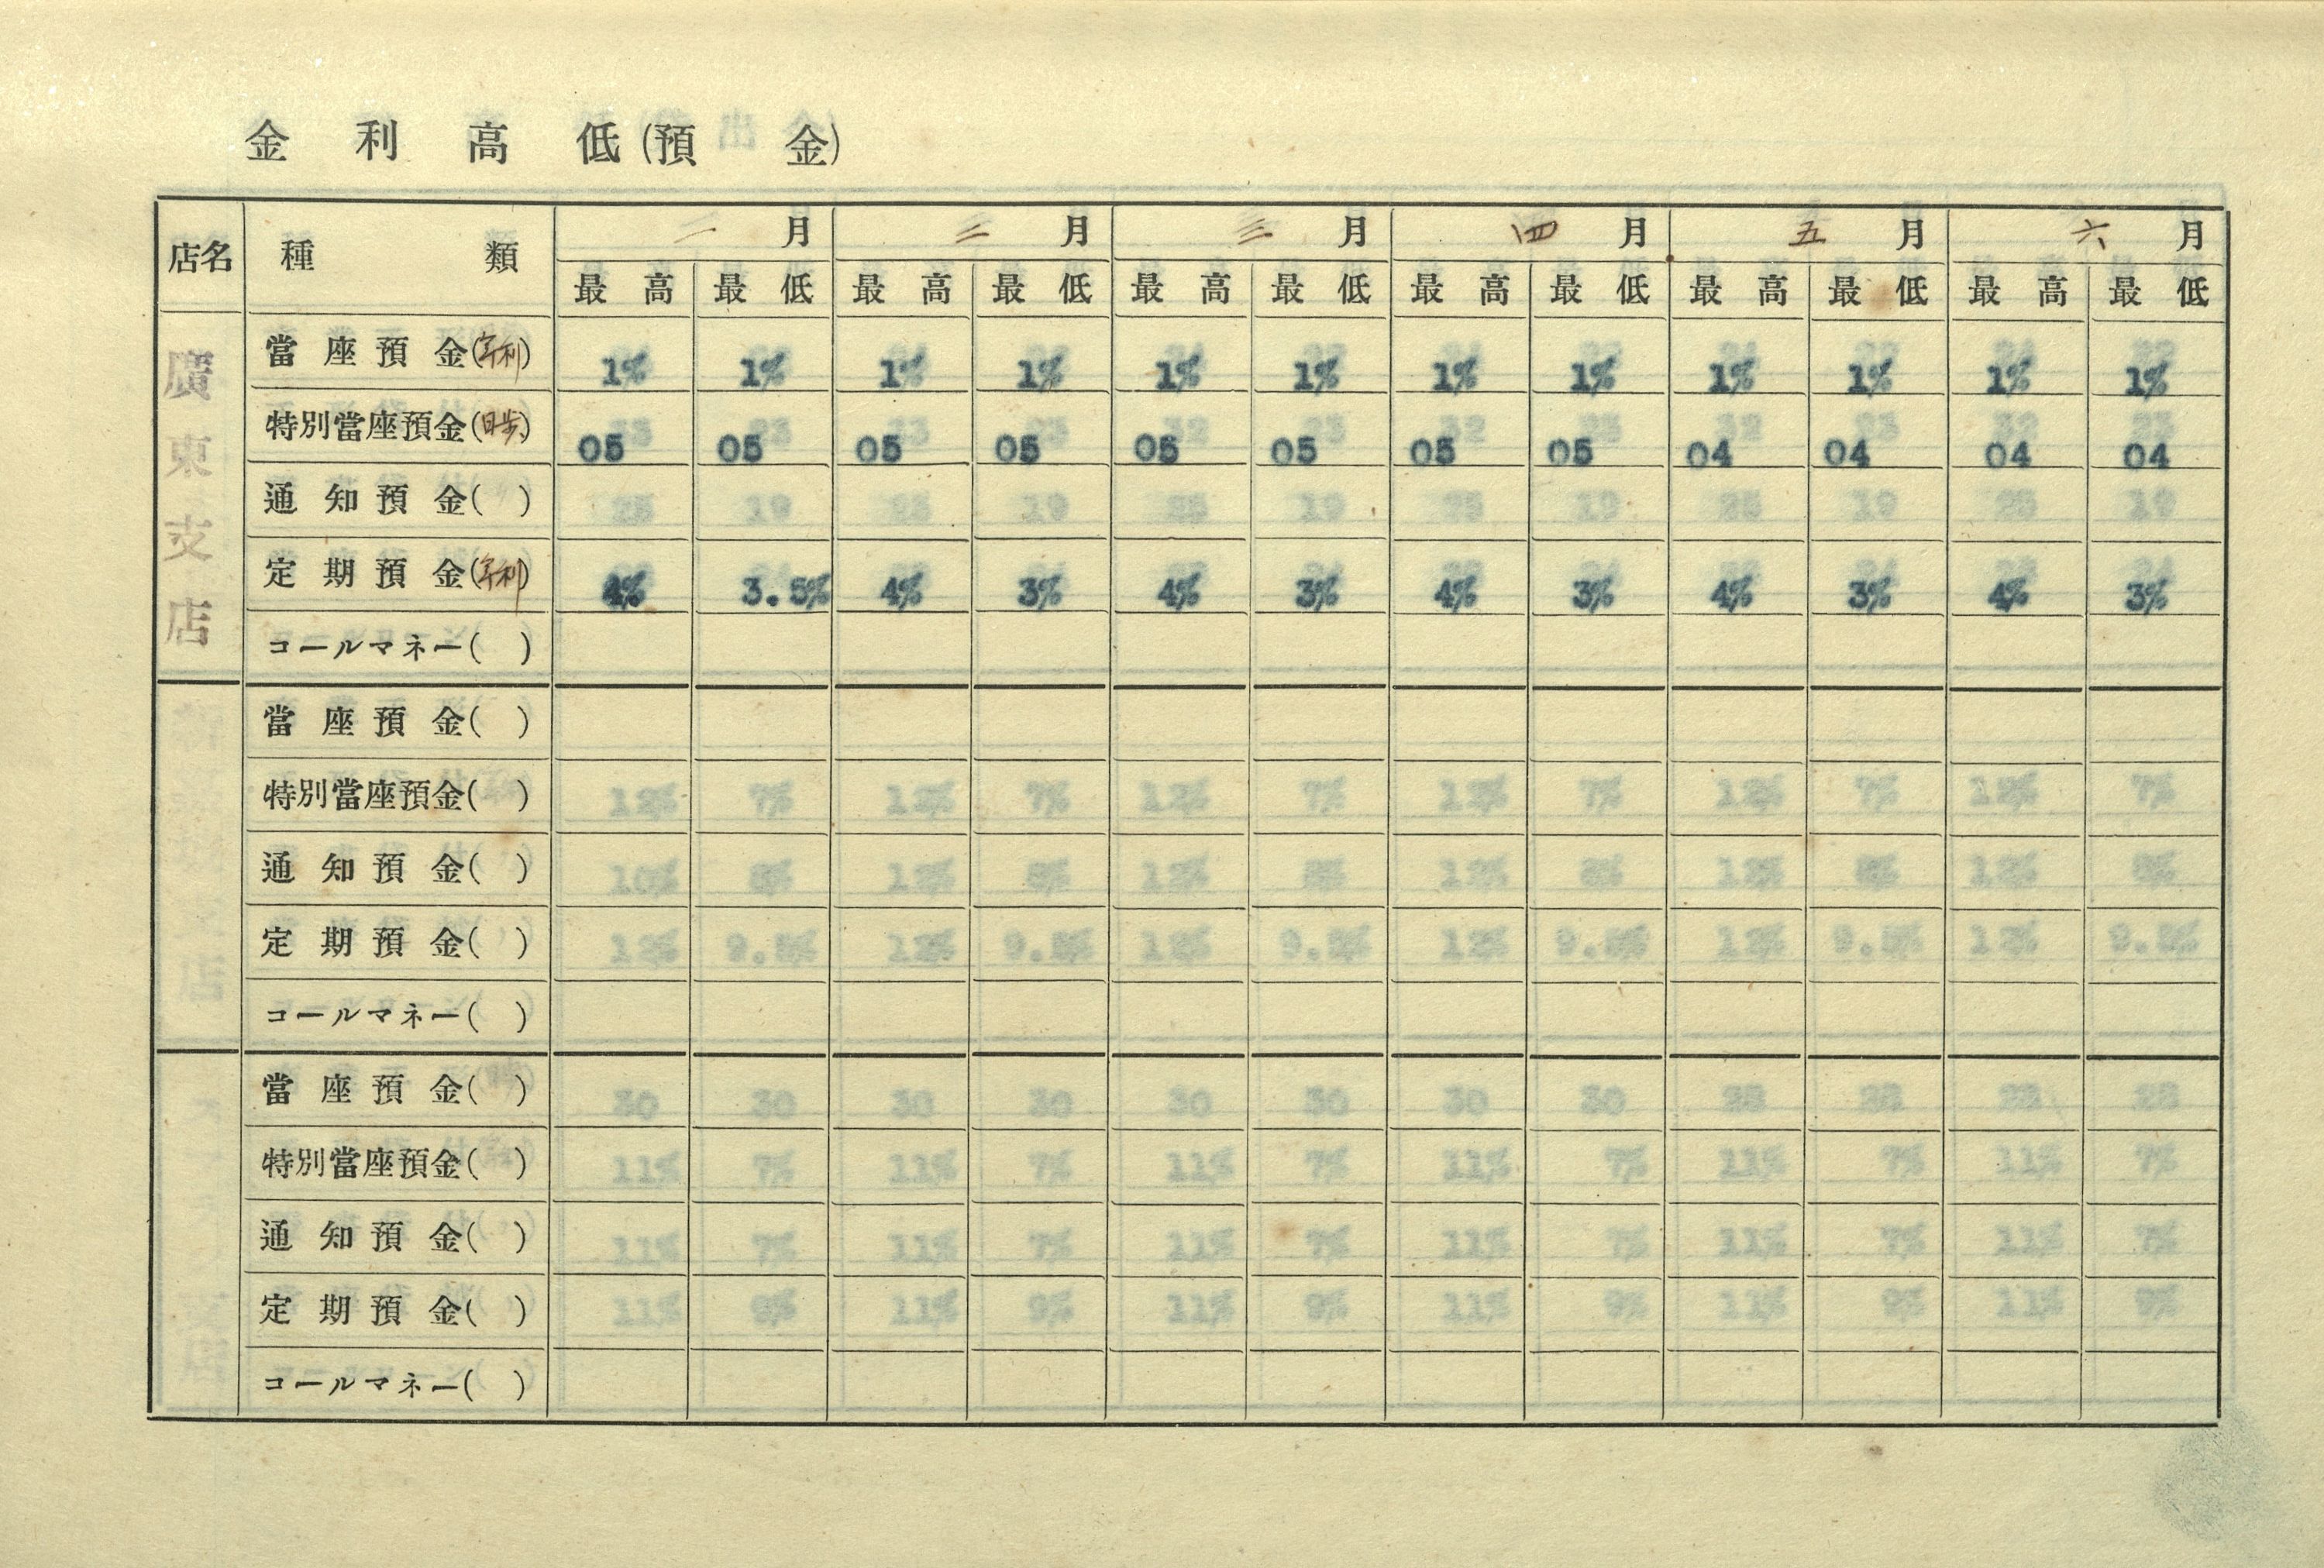 金利高低(預金)
店名 種類 一月 二月 三月 四月 五月 六月
最高 最低 最高 最低 最高 最低 最高 最低 最高 最低 最高 最低
廣東支店
當座預金(年利) 1% 1% 1% 1% 1% 1% 1% 1% 1% 1% 1% 1%
特別當座預金(日歩) 05 05 05 05 05 05 05 05 04 04 04 04
通知預金( )
定期預金(年利) 4% 3.5% 4% 3% 4% 3% 4% 3% 4% 3% 4% 3%
コールマネー( )
當座預金( )
特別當座預金( )
通知預金( )
定期預金( )
コールマネー( )
當座預金( )
特別當座預金( )
通知預金( )
定期預金( )
コールマネー( )